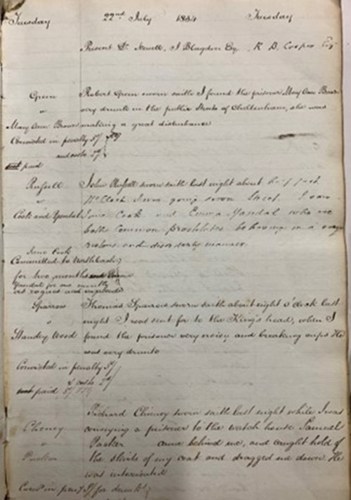 Tuesday 22nd July 1844 Tuesday
Present Dr. Newell, J Blagdon Esq, R. B. Cooper Esq
Green
v
Mary Ann Brown
Robert Green sworn saith I found the prisoner Mary Ann Brown
very drunk in the public Streets of Cheltenham, she was
making a great disturbance
Convicted in penalty 5/
and costs
paid
Russell
v
Cook and Yandal
John Russell sworn saith last night about
o'Clock I was going down Street. I saw
Jane Cook and Emma Yandal who are
both Common prostitutes behaving in a
riotous and disorderly manner.
Jane Cook
Committed to Northleach
for two months and
Yandal for one month
as rogues and vagabonds
Sparrow
v
Stanley Wood
Thomas Sparrow sworn saith about eight o'clock last
night I was sent for to the King's head, when I
found the prisoner very noisy and breaking cups He
was very drunk
Convicted in penalty 5/
& costs
paid
Cheney
v
Parker
Richard Cheney sworn saith last night while I was
conveying a prisoner to the watch house Samuel
Parker came behind me, and caught hold of
the skirts of my coat and dragged me down He
was intoxicated
Convd in pen 5/ for drunk